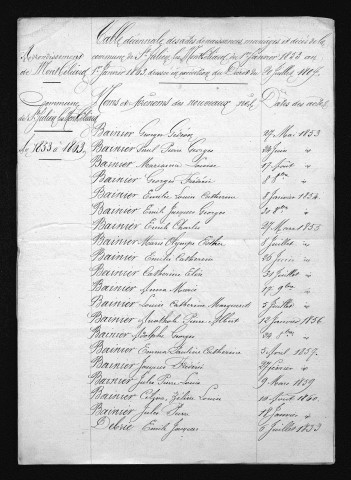 Table décennale des actes de naissances, mariages et décès de la
commune de St Julien les Montbéliard du 1er Janvier 1853 au
1er Janvier 1863 dressée en exécution du Décret du 20 Juillet 1807.
Arrondissement
de Montbéliard
Commune
de St Julien les Montbéliard
de 1853 à 1863
Noms et prénoms des nouveaux nés
Dates des actes
Bainier Georges 27 Mai 1853
Bainier Paul Pierre Georges 24 Juin "
Bainier Marianne Louise 17 Août "
Bainier Georges Frédéric 8 8bre "
Bainier Emilie Louise Catherine 8 Janvier 1854
Bainier Emile Jacques Georges 20 8bre "
Bainier Emile Charles 27 Mars 1855
Bainier Marie Olympe 8 Juillet "
Bainier Emilie Catherine 16 Juin "
Bainier Catherine Elisa 31 Juillet "
Bainier Anna Marie 17 9bre "
Bainier Louise Catherine Marguerite 5 Juillet "
Bainier Anathole Pierre Albert 12 Janvier 1856
Bainier Adolphe Georges 24 8bre "
Bainier Emma Pauline Catherine 3 Août 1857
Bainier Jacques Frédéric 27 février "
Bainier Julie Pierre Louis 9 Mars 1859
Bainier Céline Zélim Louise 10 Août 1860
Bainier Jules Pierre 18 Janvier "
Debrie Emile Jacques 6 Juillet 1853